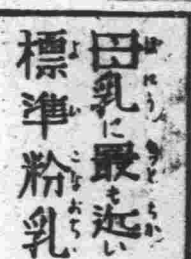 母乳に最も近い
標準粉乳